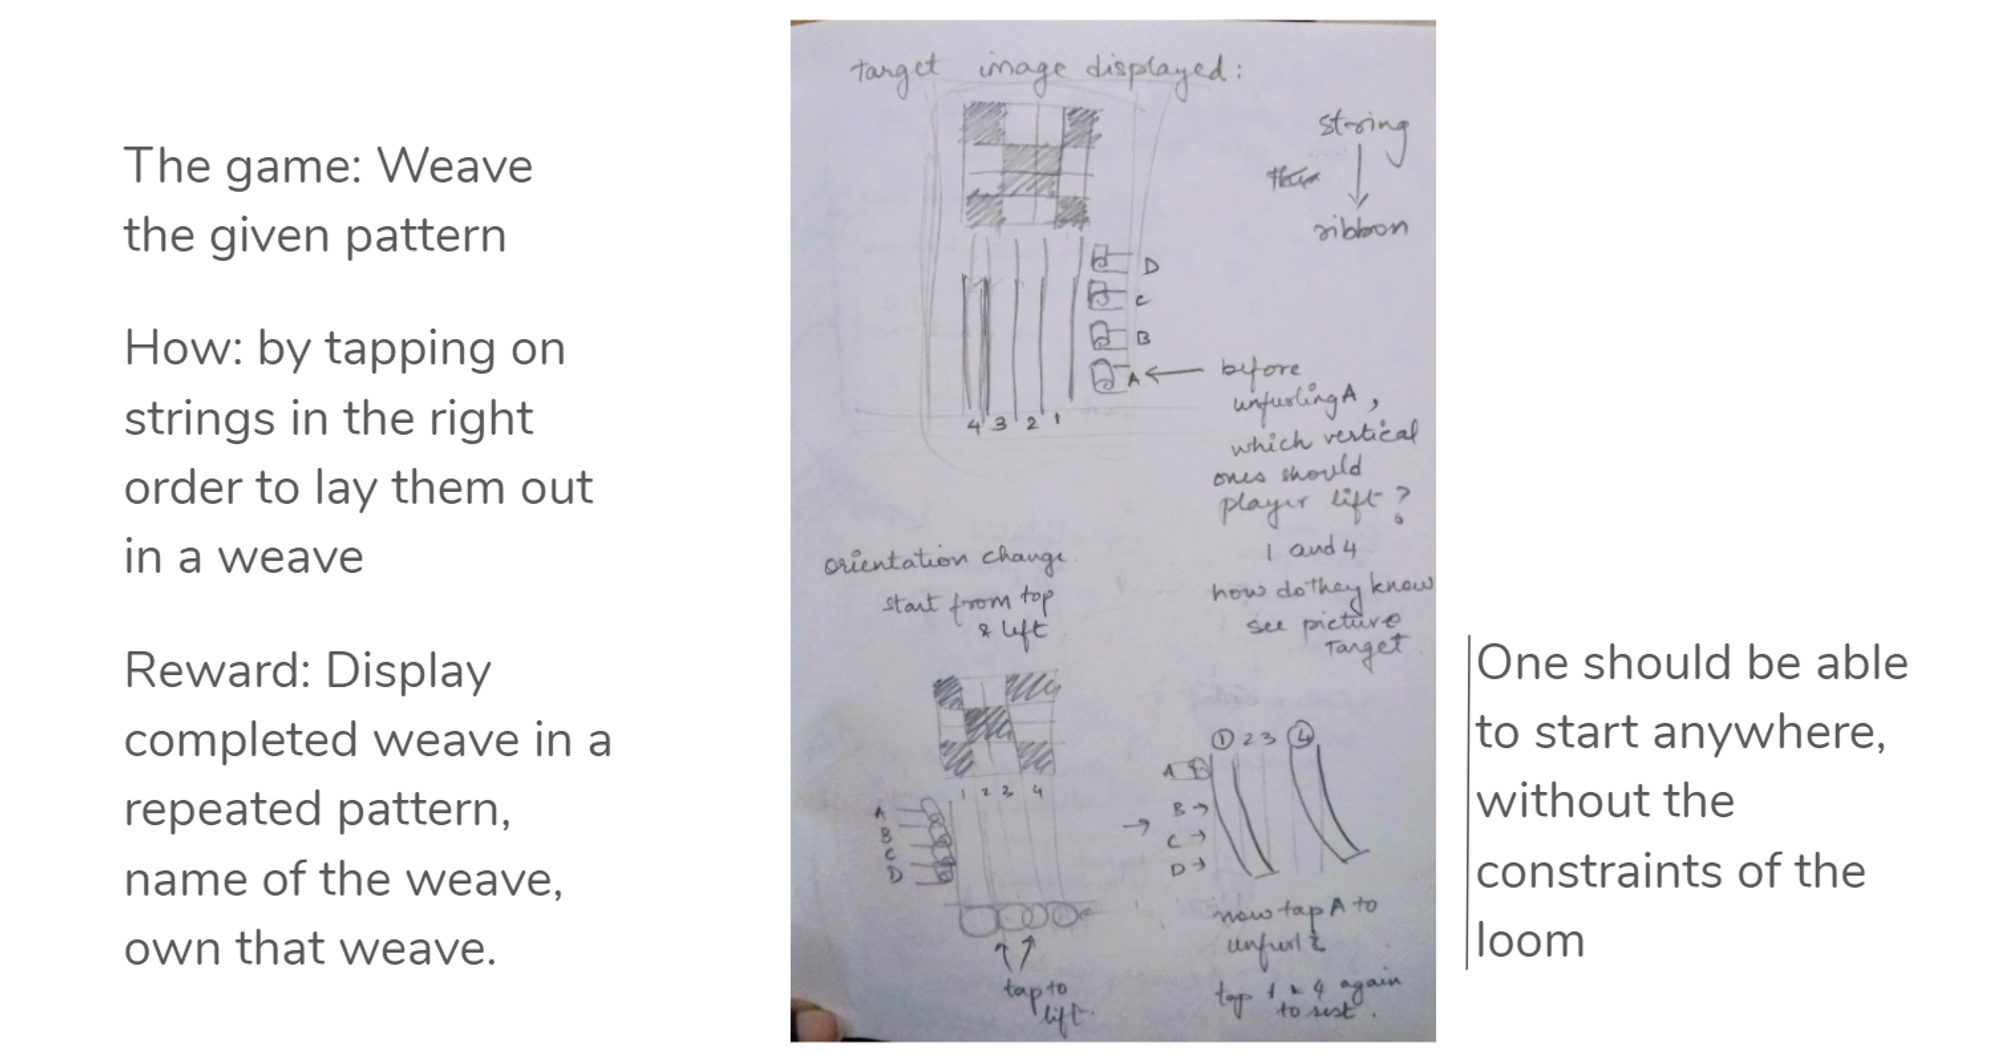 The game: Weave
the given pattern
How: by tapping on
strings in the right
order to lay them out
in a weave
Reward: Display
completed weave in a
repeated pattern,
name of the weave,
own that weave.
target image displayed:
string
ribbon
D
C
B
A
4 3 2 1
before
unfurling A,
which vertical
ones should
player lift?
1 and 4
how do they know
see picture
Target
orientation change
start from top
& left
1 2 3 4
A
B
C
D
tap to
lift.
1 2 3 4
A
B
C
D
now tap A to
unfurl
tap 1 & 4 again
to rest.
One should be able
to start anywhere,
without the
constraints of the
loom